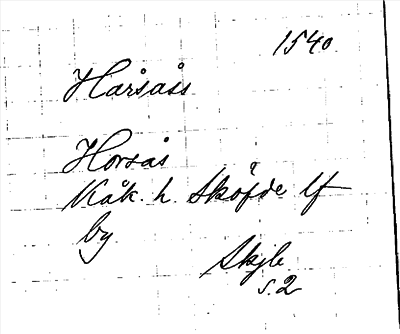 1540
Hårsåss
Horsås
Kåk. h. Sköfde lf
by
Skjb
s. 2